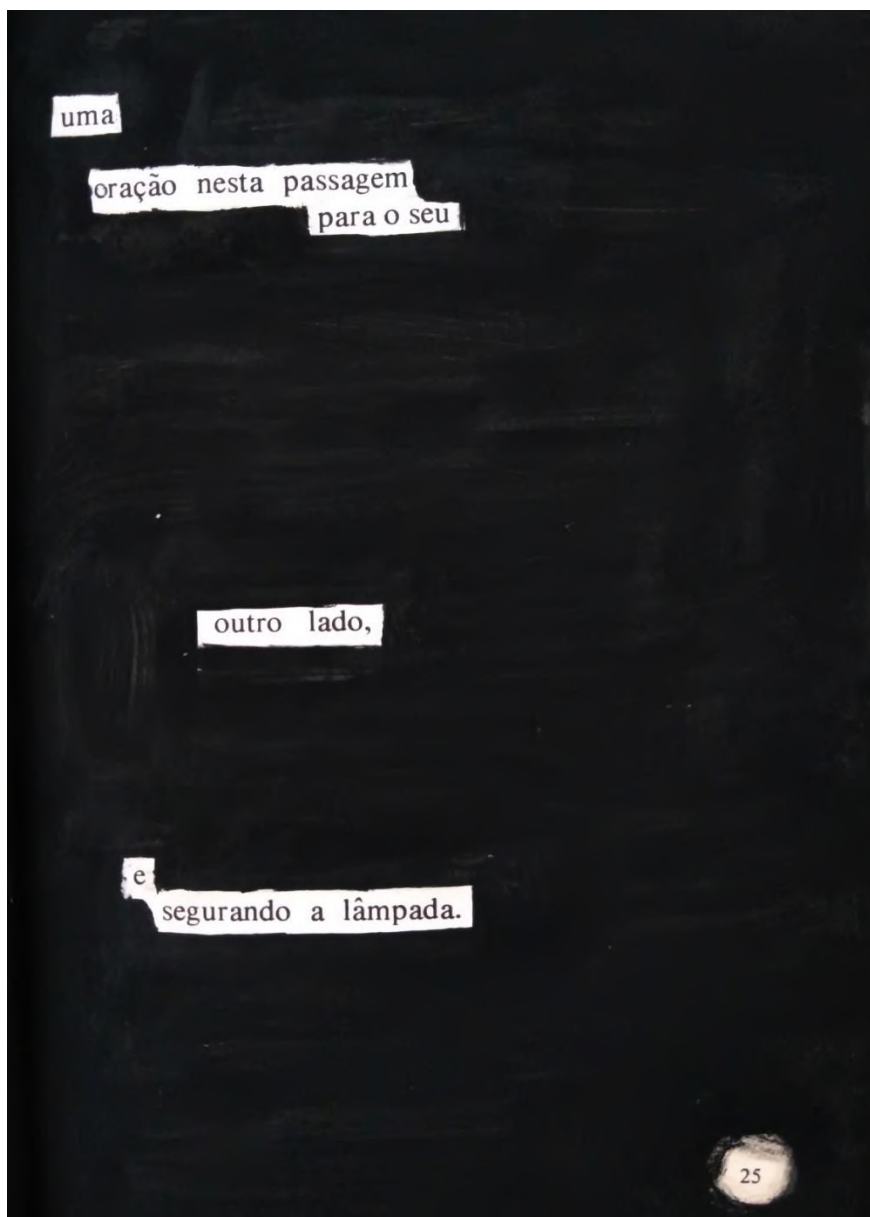 uma
oração nesta passagem
para o seu
outro lado,
e
segurando a lâmpada.
25